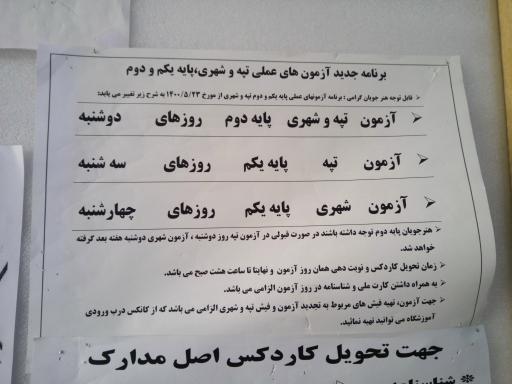 برنامه جدید آزمون های عملی تپه و شهری،پایه یکم و دوم
قابل توجه هنر جویان گرامی : برنامه آزمونهای عملی پایه یکم و دوم تپه و شهری از مورخ ۱۴۰۰/۵/۲۳ به شرح زیر تغییر می یابد:
آزمون تپه و شهری پایه دوم روزهای دوشنبه
آزمون تپه پایه یکم روزهای سه شنبه
آزمون شهری پایه یکم روزهای چهارشنبه
هنرجویان پایه دوم توجه داشته باشند در صورت قبولی در آزمون تپه روز دوشنبه ، آزمون شهری دوشنبه هفته بعد گرفته
خواهد شد.
زمان تحویل کاردکس و نوبت دهی همان روز آزمون و نهایتا تا ساعت هشت صبح می باشد.
به همراه داشتن کارت ملی و شناسنامه در روز آزمون الزامی می باشد.
جهت آزمون، تهیه فیش های مربوط به تجدید آزمون و فیش تپه و شهری الزامی می باشد که از کانکس درب ورودی
آموزشگاه می توانید تهیه نمائید.
جهت تحویل کاردکس اصل مدارک